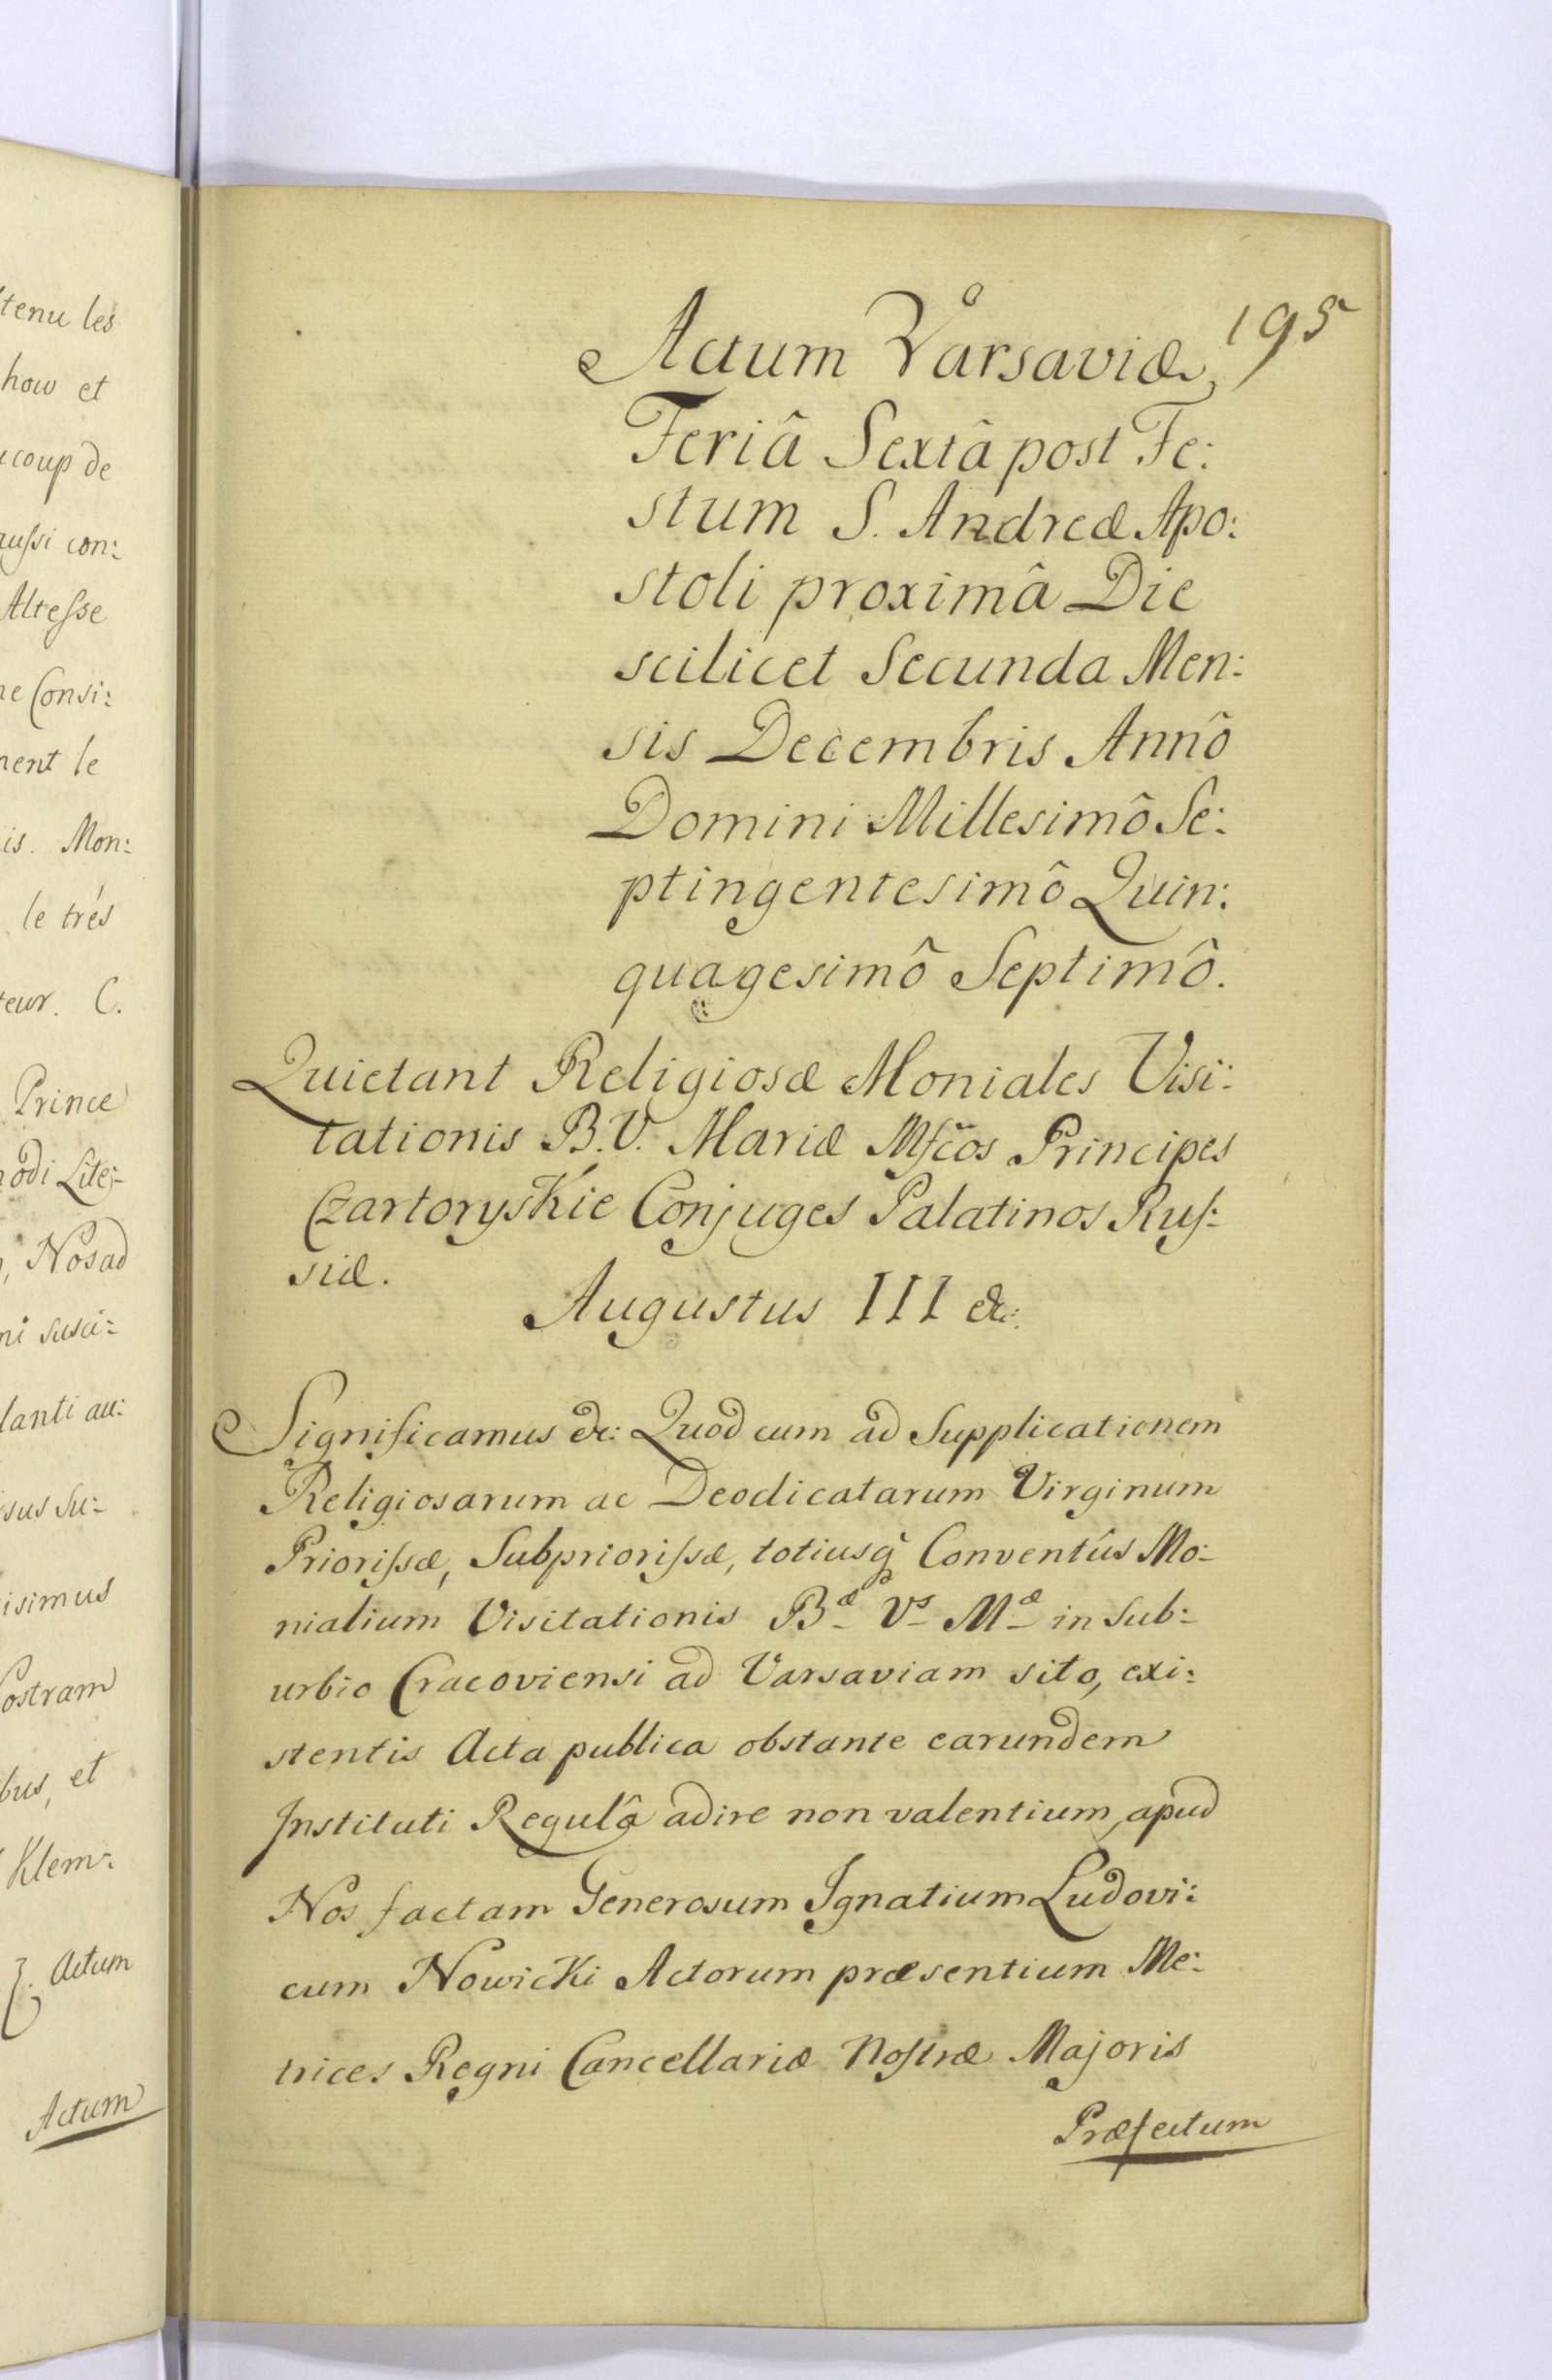 tenu les
how et
coup de
aussi con:
Altesse
ne Consi:
ment le
is. Mon:
le trés
teur. C.
Prince
odi Lite:
, Nos ad
ni susci:
lanti au:
sus Su:
isimus
ostram
bus, et
Klem:
Actum
Actum
195
Actum Varsaviæ,
Feriâ Sextâ post Fe:
stum S. Andreæ Apo:
stoli proximâ Die
scilicet Secunda Men:
sis Decembris Annô
Domini Millesimô Se:
ptingentesimô Quin:
quagesimô Septimô.
Quietant Religiosæ Moniales Visi:
tationis B.V. Mariæ Mfcos Principes
Czartoryskie Conjuges Palatinos Rus:
siæ.
Augustus III &c:
Significamus &c: Quod cum ad Supplicationem
Religiosarum ac Deodicatarum Virginum
Priorissæ, Subpriorissæ, totiusq̀ Conventûs Mo:
nialium Visitationis Bæ Vs Mæ in Sub:
urbio Cracoviensi ad Varsaviam sito, exi:
stentis Acta publica obstante earundem
Instituti Regulâ adire non valentium, apud
Nos factam Generosum Ignatium Ludovi:
cum Nowicki Actorum præsentium Me:
trices Regni Cancellariæ Nostræ Majoris
Præfectum